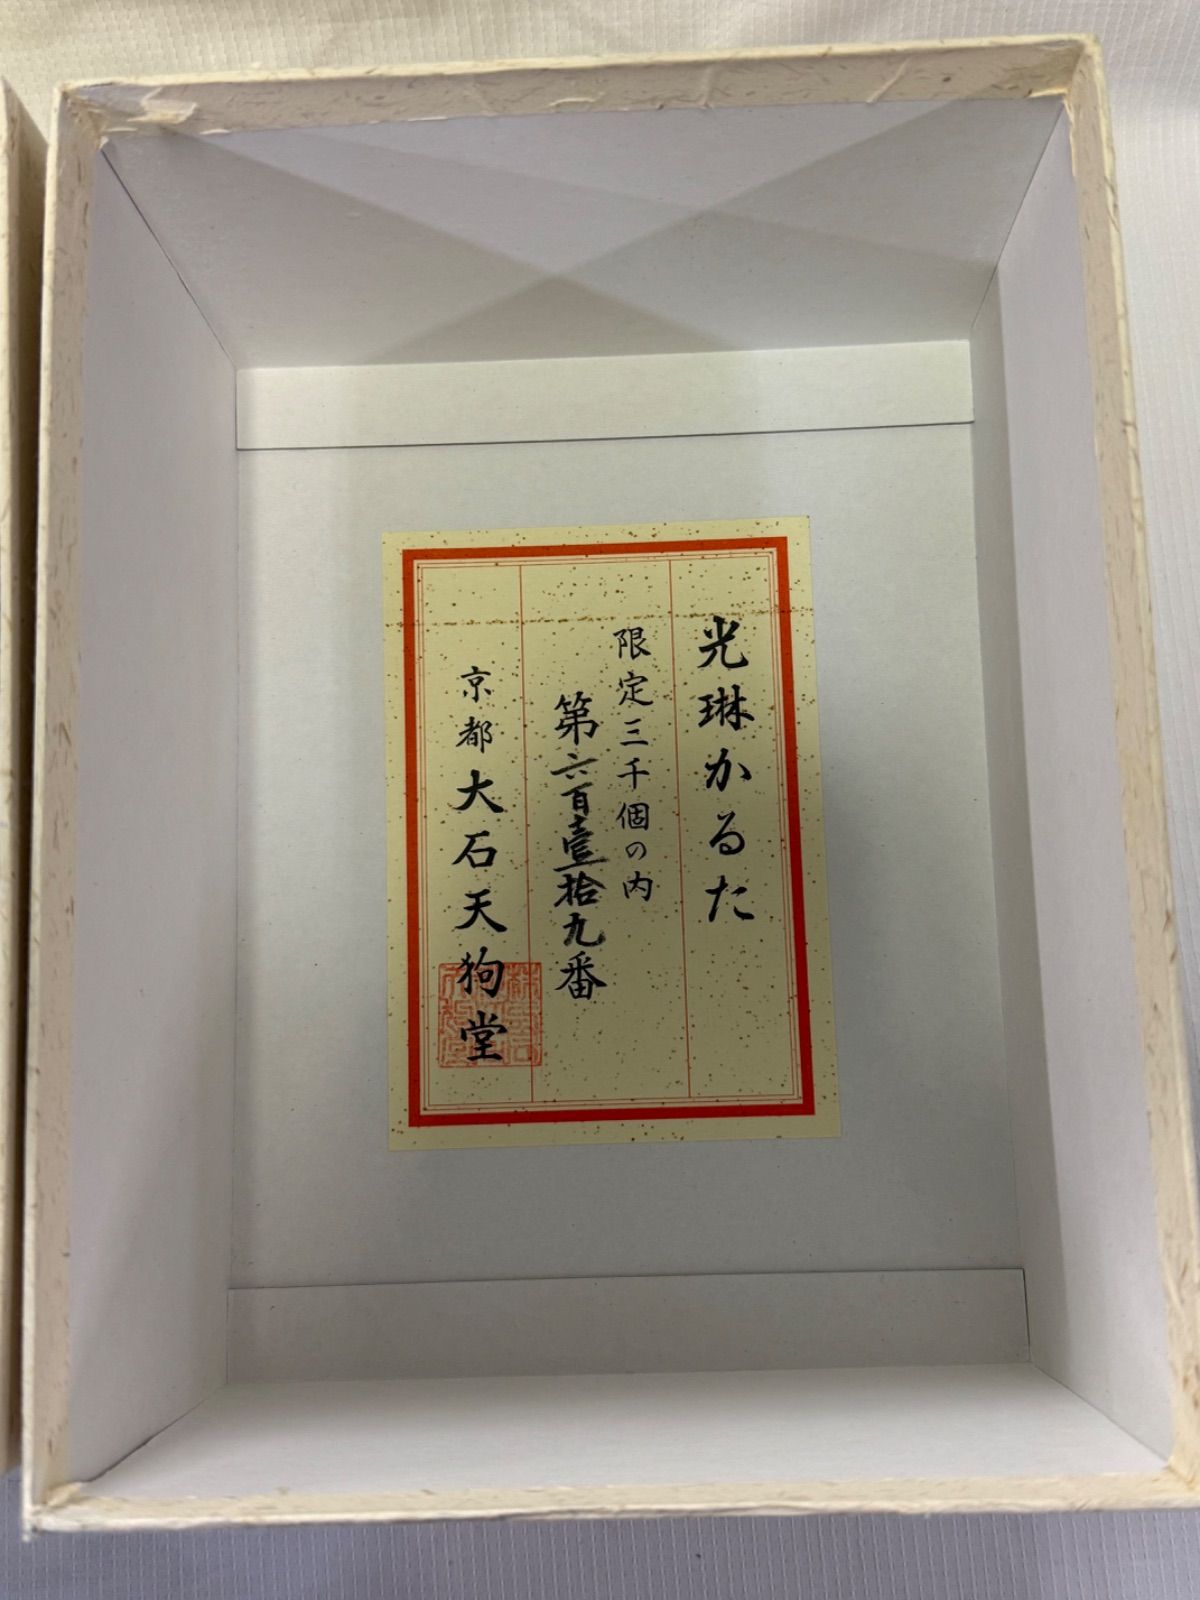 光琳かるた
限定三千個の内
第六百壹拾九番
京都 大石天狗堂